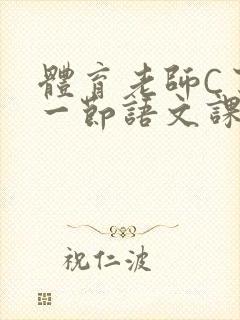 體育老師C
一節語文課
祝仁波